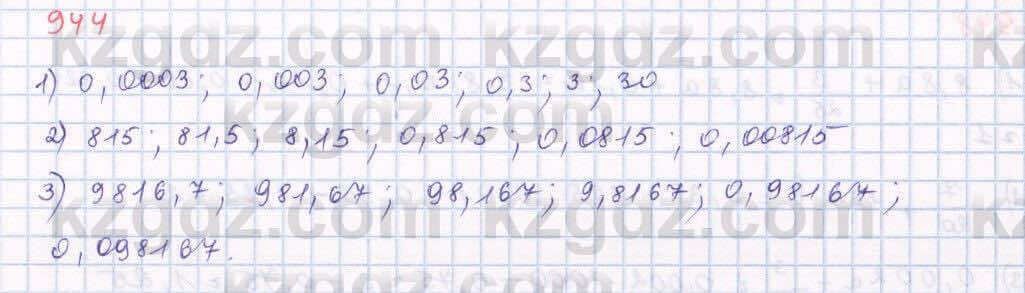 944
1) 0,0003; 0,003; 0,03; 0,3; 3; 30
2) 815; 81,5; 8,15; 0,815; 0,0815; 0,00815
3) 9816,7; 981,67; 98,167; 9,8167; 0,98167;
0,098167.
kzgdz.com kzgdz.com kzgdz.com
kzgdz.com kzgdz.com kzgdz.com
kzgdz.com kzgdz.com kzgdz.com